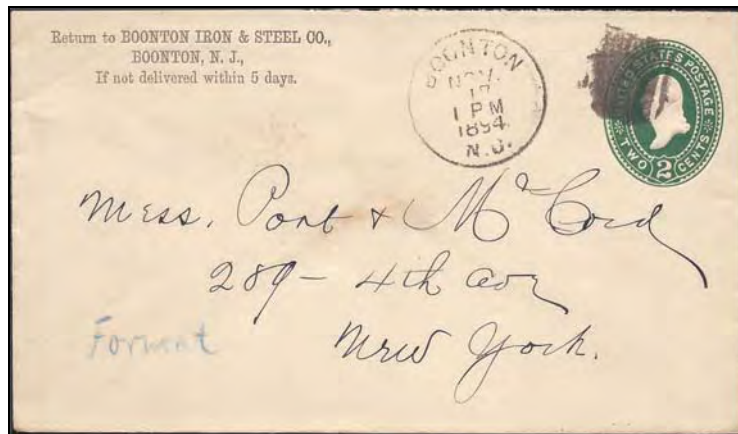 Return to BOONTON IRON & STEEL CO.,
BOONTON, N. J.,
If not delivered within 5 days.
BOONTON
NOV.
17
1 PM
1894
N.J.
UNITED STATES POSTAGE
TWO 2 CENTS
Mess. Post & McCord
289 - 4th Ave
New York.